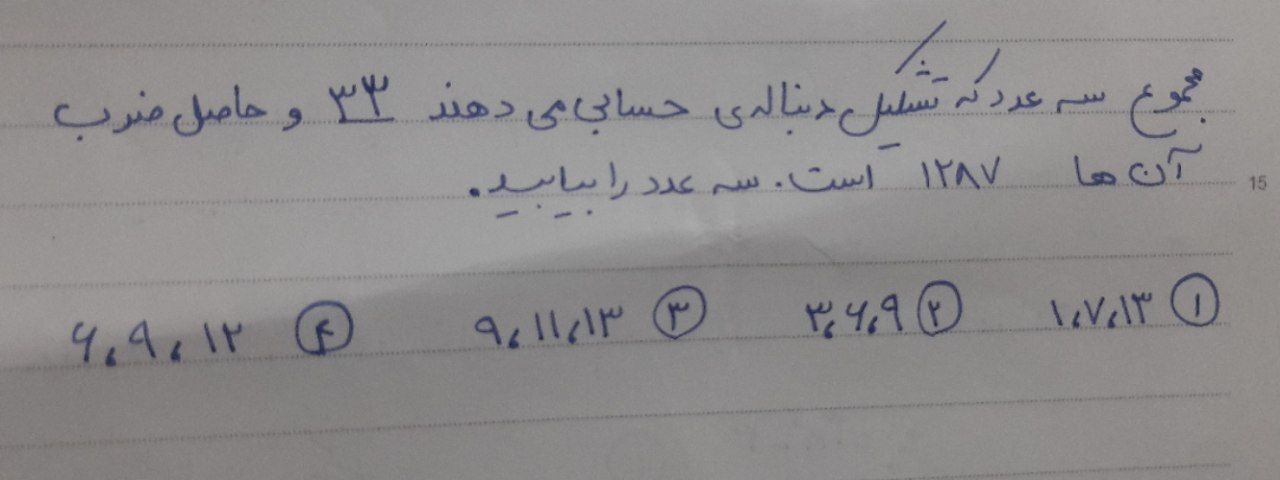 مجموع سه عدد که تشکیل دنباله‌ی حسابی می دهند ۳۳ و حاصل ضرب
آن ها ۱۲۸۷ است. سه عدد را بیابید.
15
① ۱،۷،۱۳ ② ۳،۶،۹ ③ ۹،۱۱،۱۳ ④ ۶،۹،۱۲